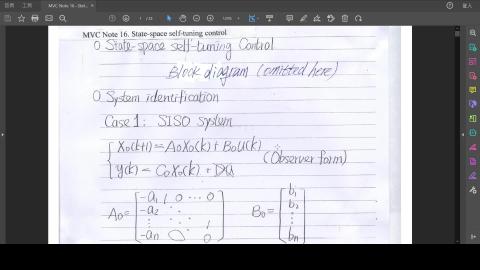 首页 工具 MVC Note 16. Stat...
登入
1 / 13
MVC Note 16. State-space self-tuning control
O State-space self-tuning Control
Block diagram (omitted here)
O System identification
Case 1: SISO system
X₀(k+1) = A₀X₀(k) + B₀U(k)
(Observer form)
y(k) = C₀X₀(k) + DU
A₀ = [ -a₁ 1 0 ⋯ 0
-a₂ ⋱ ⋱
⋮ ⋱ 1
-aₙ 0 0 ]
B₀ = [ b₁
b₂
⋮
bₙ ]